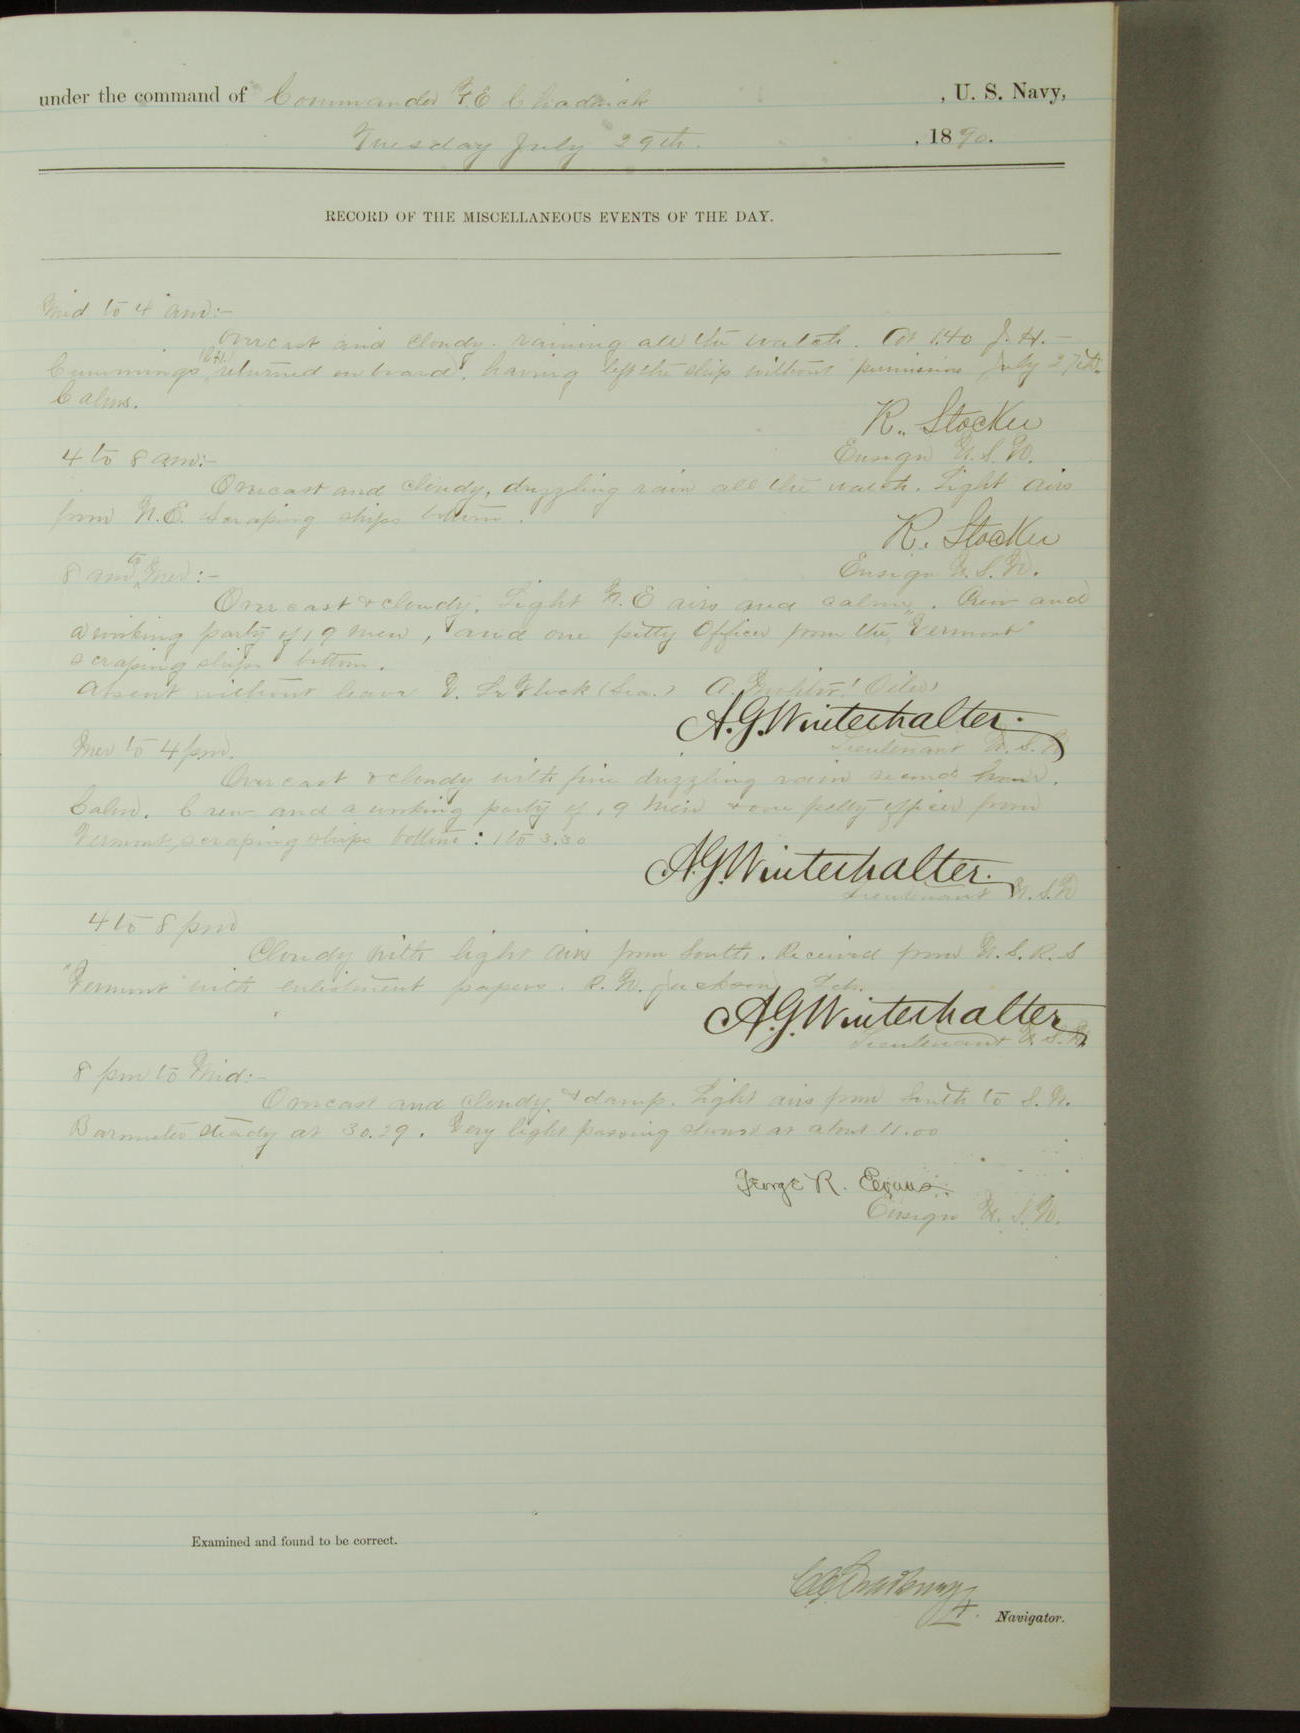 under the command of Commander F. E. Chadwick , U. S. Navy,
Tuesday July 29th. , 1890.
RECORD OF THE MISCELLANEOUS EVENTS OF THE DAY.
Mid to 4 am:-
Overcast and cloudy. raining all the watch. At 1.40 J. H.
Cummings returned on board, having left the ship without permission July 27th.
Calms.
R. Stocker
Ensign U.S.N.
4 to 8 am:-
Overcast and cloudy, druzzling rain all the watch. Light airs
from N.E. Scraping ships bottom.
R. Stocker
Ensign U.S.N.
8 am to Mer:-
Overcast & cloudy. Light N.E airs and calms. Crew and
a working party of 19 men, and one petty Officer from the "Vermont"
scraping ships bottom.
Absent without leave (Sea.) A.
A.G. Winterhalter.
Lieutenant U.S.N
Mer to 4 pm.
Overcast & cloudy with fine druzzling rain second hour.
Calm. Crew and a working party of 19 men & one petty officer from
Vermont, scraping ships bottom: 1 to 3.30
A.G. Winterhalter.
Lieutenant U.S.N
4 to 8 pm
Cloudy with light airs from South. Received from U.S.R.S
"Vermont with enlistment papers. Jackson
A.G. Winterhalter
Lieutenant U.S.N.
8 pm to Mid:-
Overcast and cloudy & damp. Light airs from South to S.W.
Barometer steady at 30.29. Very light passing shower at about 11.00
George R. Evans.
Ensign U.S.N.
Examined and found to be correct.
Navigator.